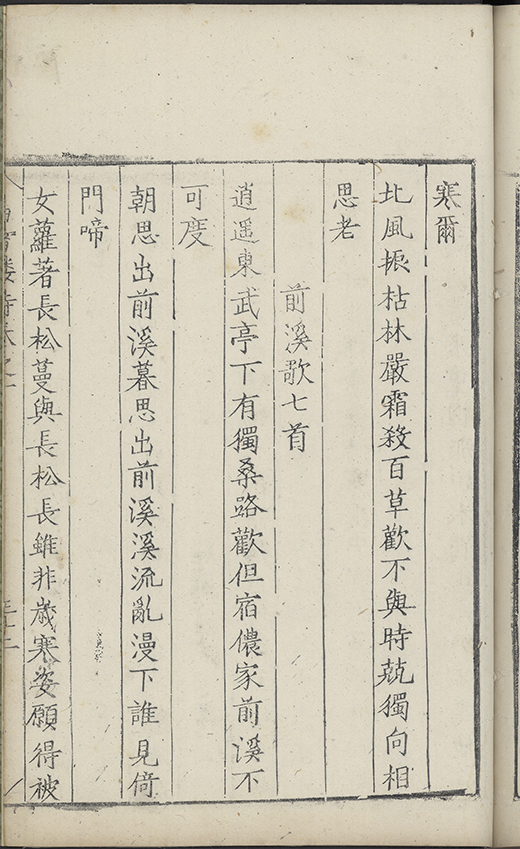 寒爾
北風振枯林嚴霜殺百草歡不與時兢獨向相
思老
前溪歌七首
逍遥東武亭下有獨桑路歡但宿儂家前溪不
可度
朝思出前溪暮思出前溪溪流亂漫下誰見倚
門啼
女蘿著長松蔓與長松長雖非歲寒姿願得被